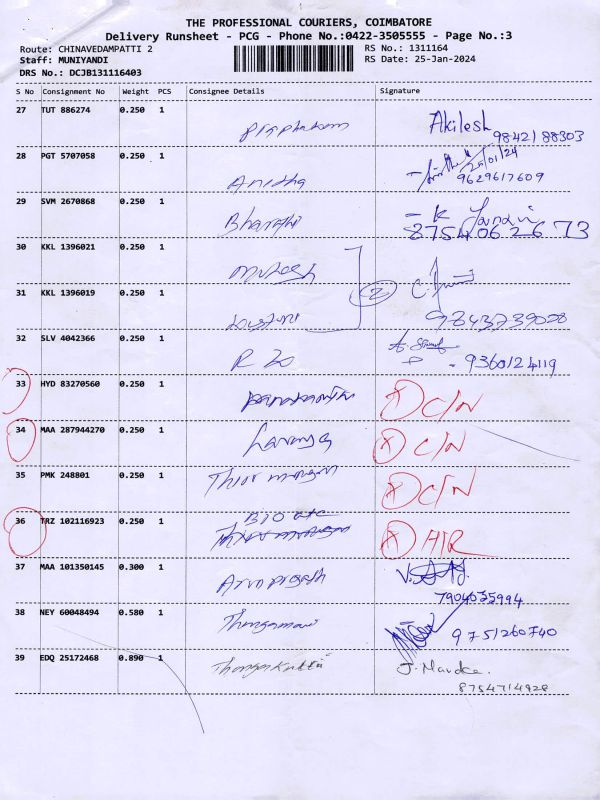 THE PROFESSIONAL COURIERS, COIMBATORE
Delivery Runsheet - PCG - Phone No.:0422-3505555 - Page No.:3
Route: CHINAVEDAMPATTI 2 RS No.: 1311164
Staff: MUNIYANDI RS Date: 25-Jan-2024
DRS No.: DCJB131116403
S No Consignment No Weight PCS Consignee Details Signature
27 TUT 886274 0.250 1 Akilesh
9842188303
28 PGT 5707058 0.250 1 Anidha 25/01/24
9629617609
29 SVM 2670868 0.250 1 Bharathi - K
8754062673
30 KKL 1396021 0.250 1 Mukesh
(2) C.
31 KKL 1396019 0.250 1 9843739028
32 SLV 4042366 0.250 1 - 9360124119
33 HYD 83270560 0.250 1 C/N
34 MAA 287944270 0.250 1 Lavanya C/N
35 PMK 248801 0.250 1 Thirumurugan C/N
36 TRZ 102116923 0.250 1
37 MAA 101350145 0.300 1 Arvoprgash
7904035994
38 NEY 60048494 0.580 1 Thangamani 9751260740
39 EDQ 25172468 0.890 1 Thangakutti J.
8754714928